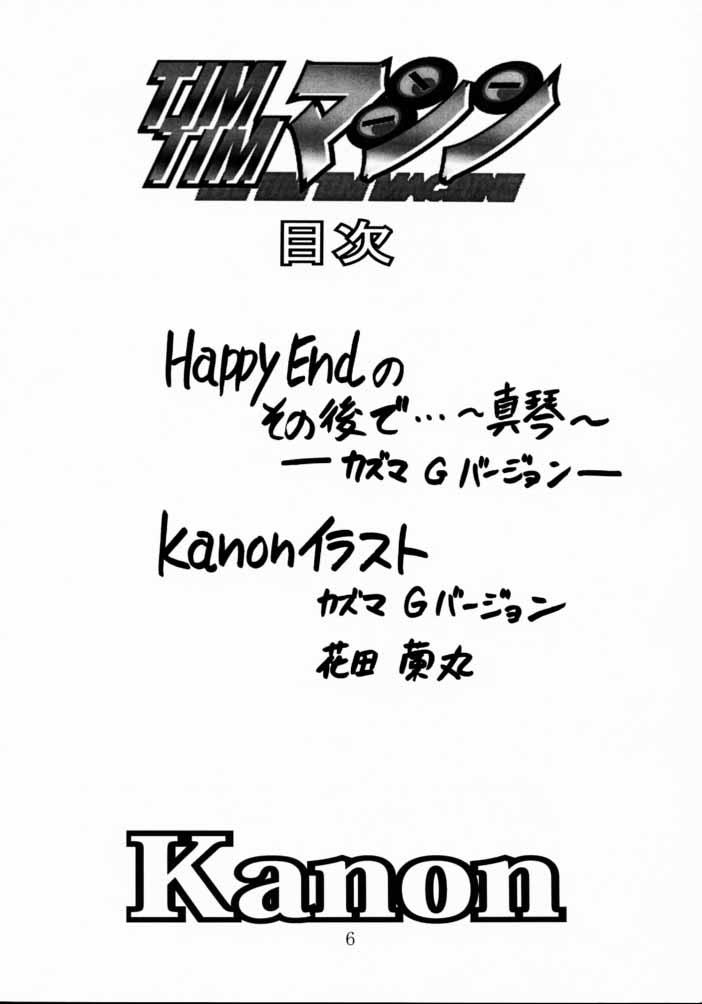 TIM
TIMマシン
TIM TIM MACHINE
目次
Happy Endの
その後で…～真琴～
ーカズマ Gバージョンー
Kanonイラスト
カズマ Gバージョン
花田 蘭丸
Kanon
6